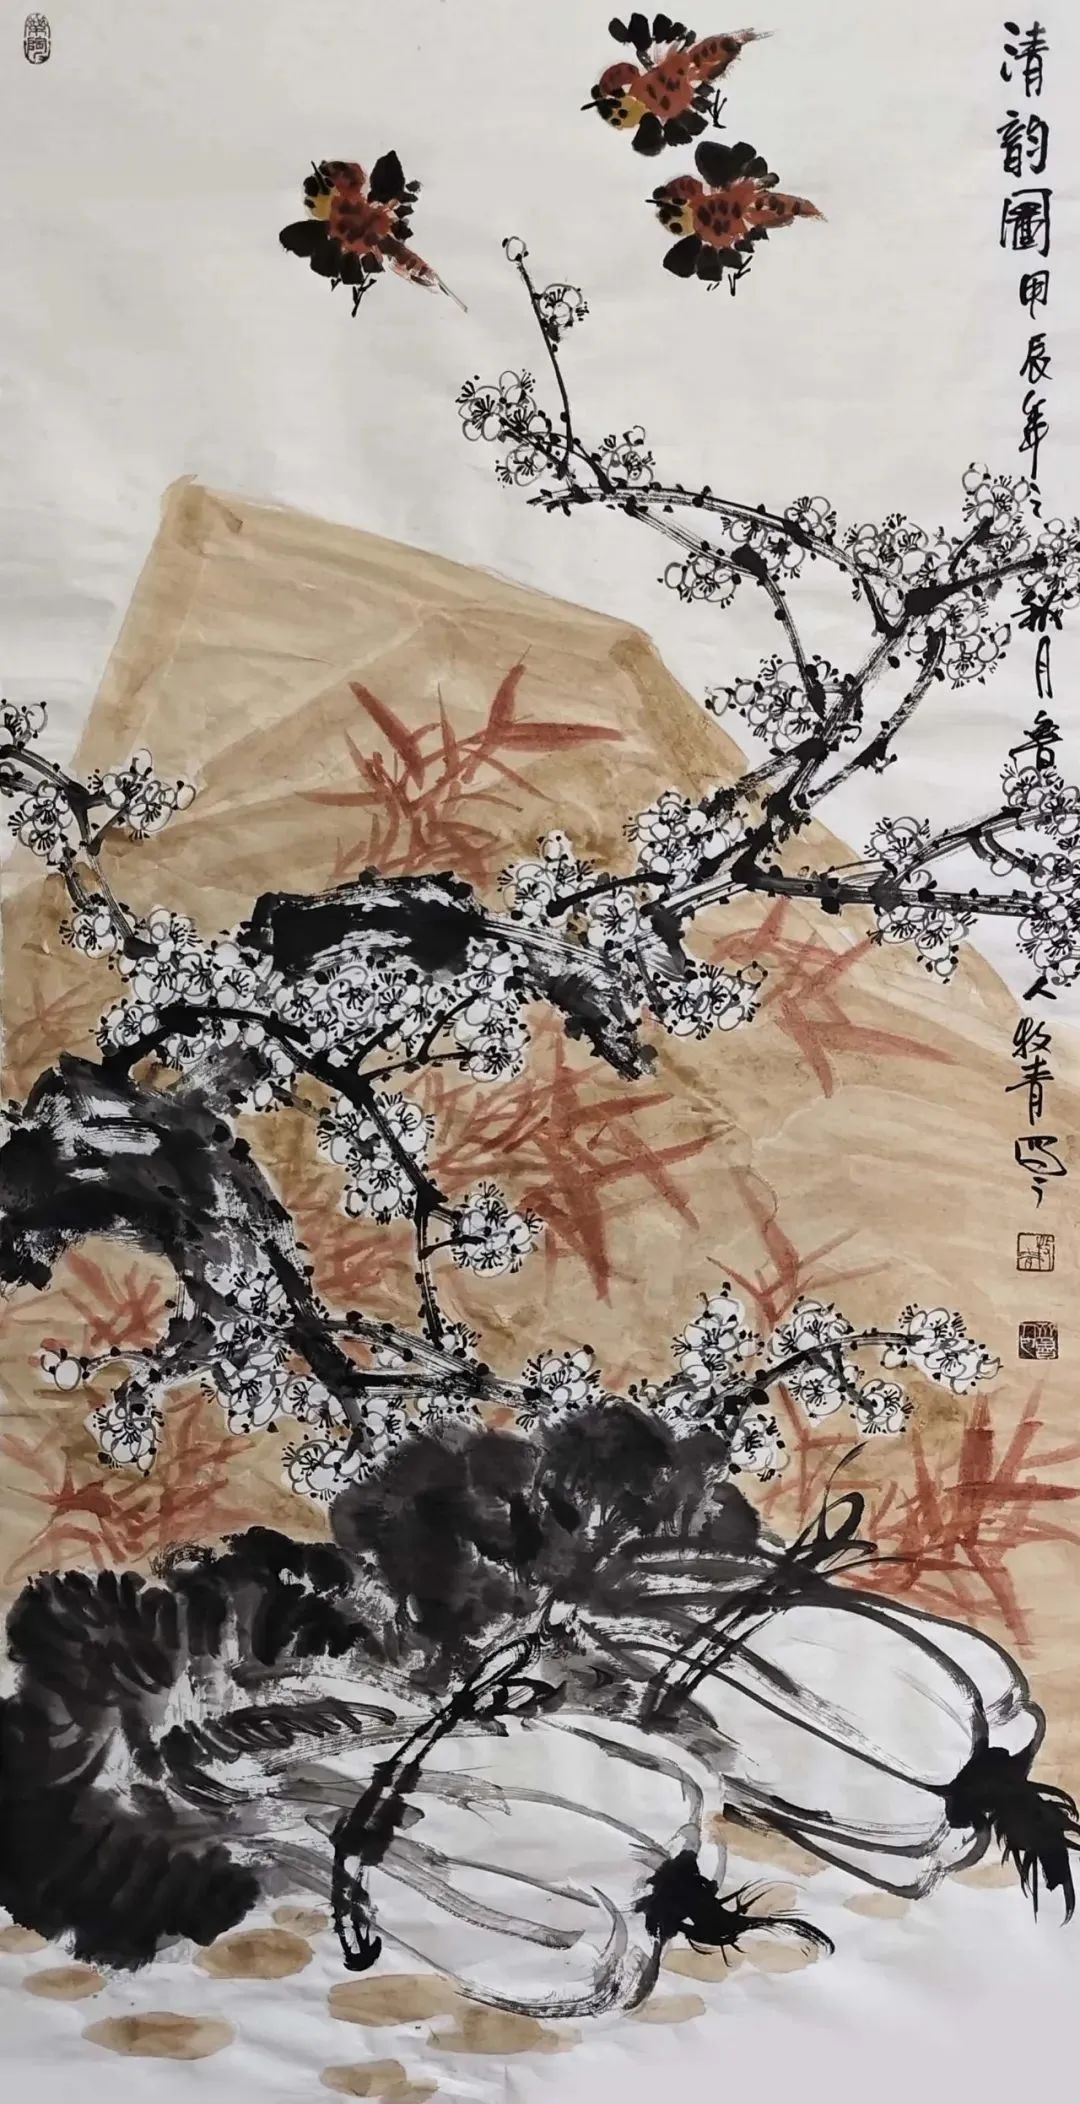 清韵圖甲辰年之秋月魯人牧青写